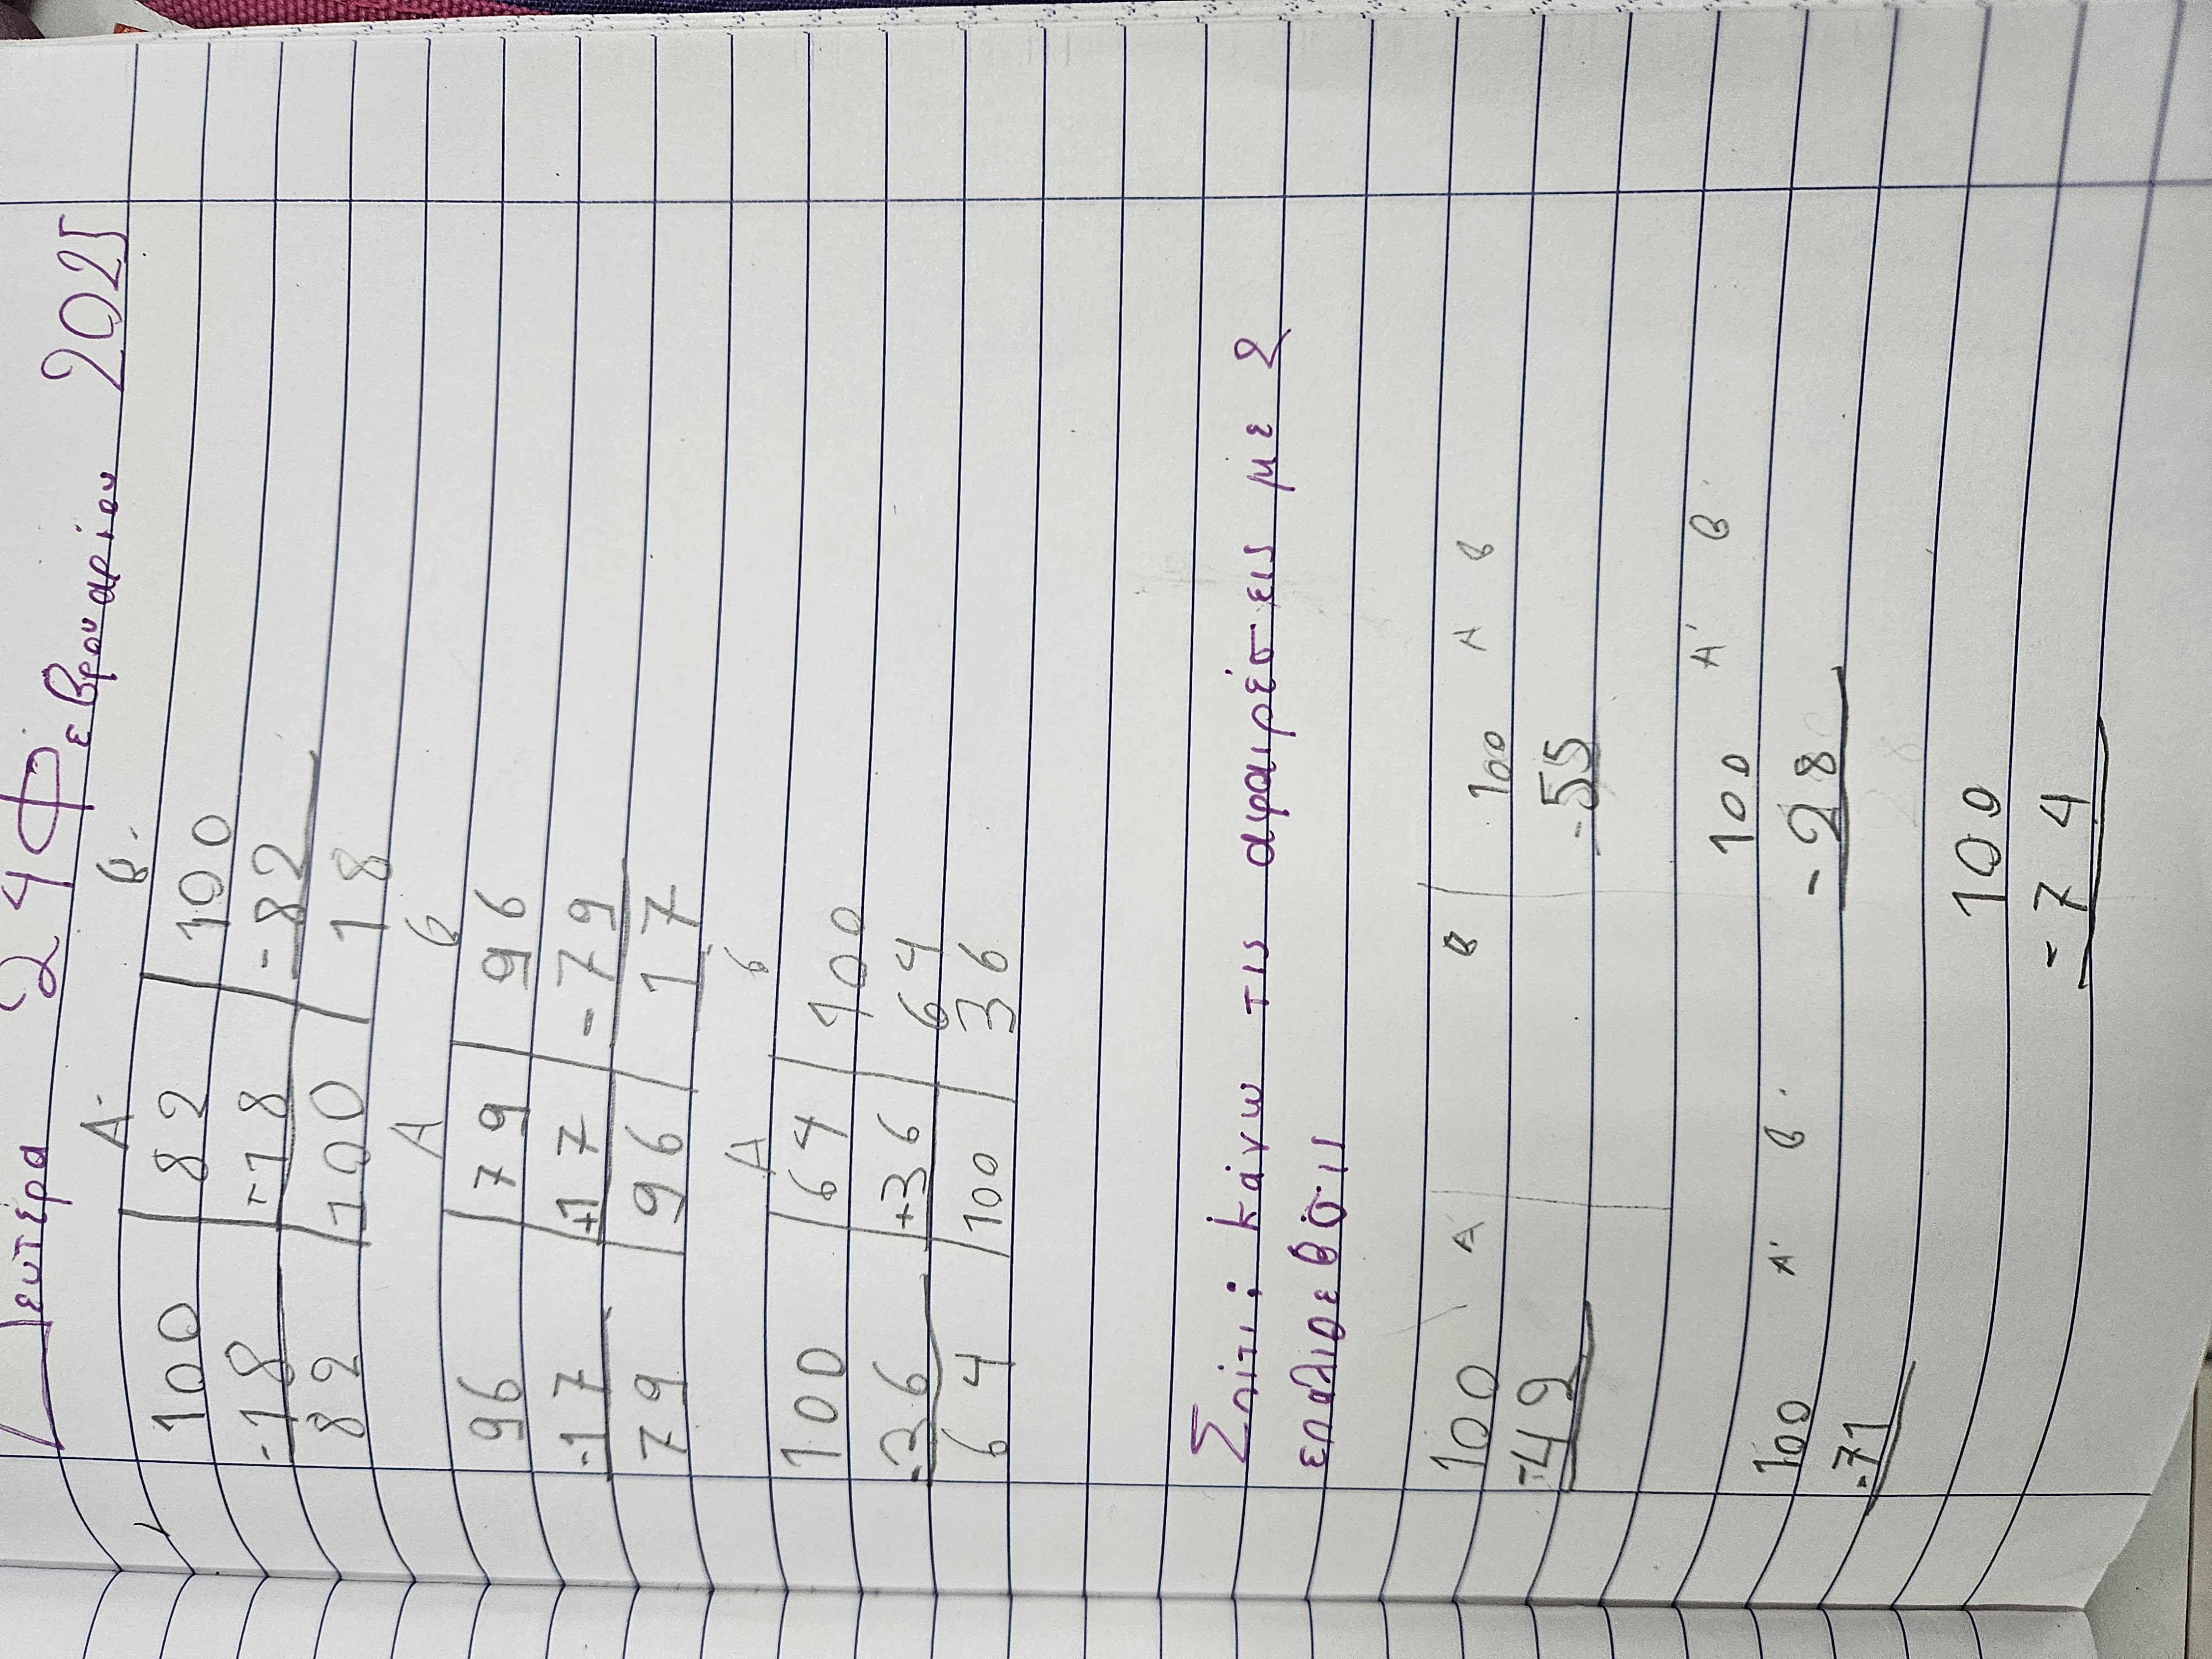 Δευτέρα 24 Φεβρουαρίου 2025
Α. β.
100 82 100
-18 -18 -82
82 100 18
Α β
96 79 96
-17 +17 -79
79 96 17
Α β
100 64 100
-36 +36 64
64 100 36
Σπίτι: κάνω τις αφαιρέσεις με 2
επαλιθεύσις
100 Α β 100 Α β
-49 -55
100 Α' β. 100 Α' β.
-71 -28
100
-74